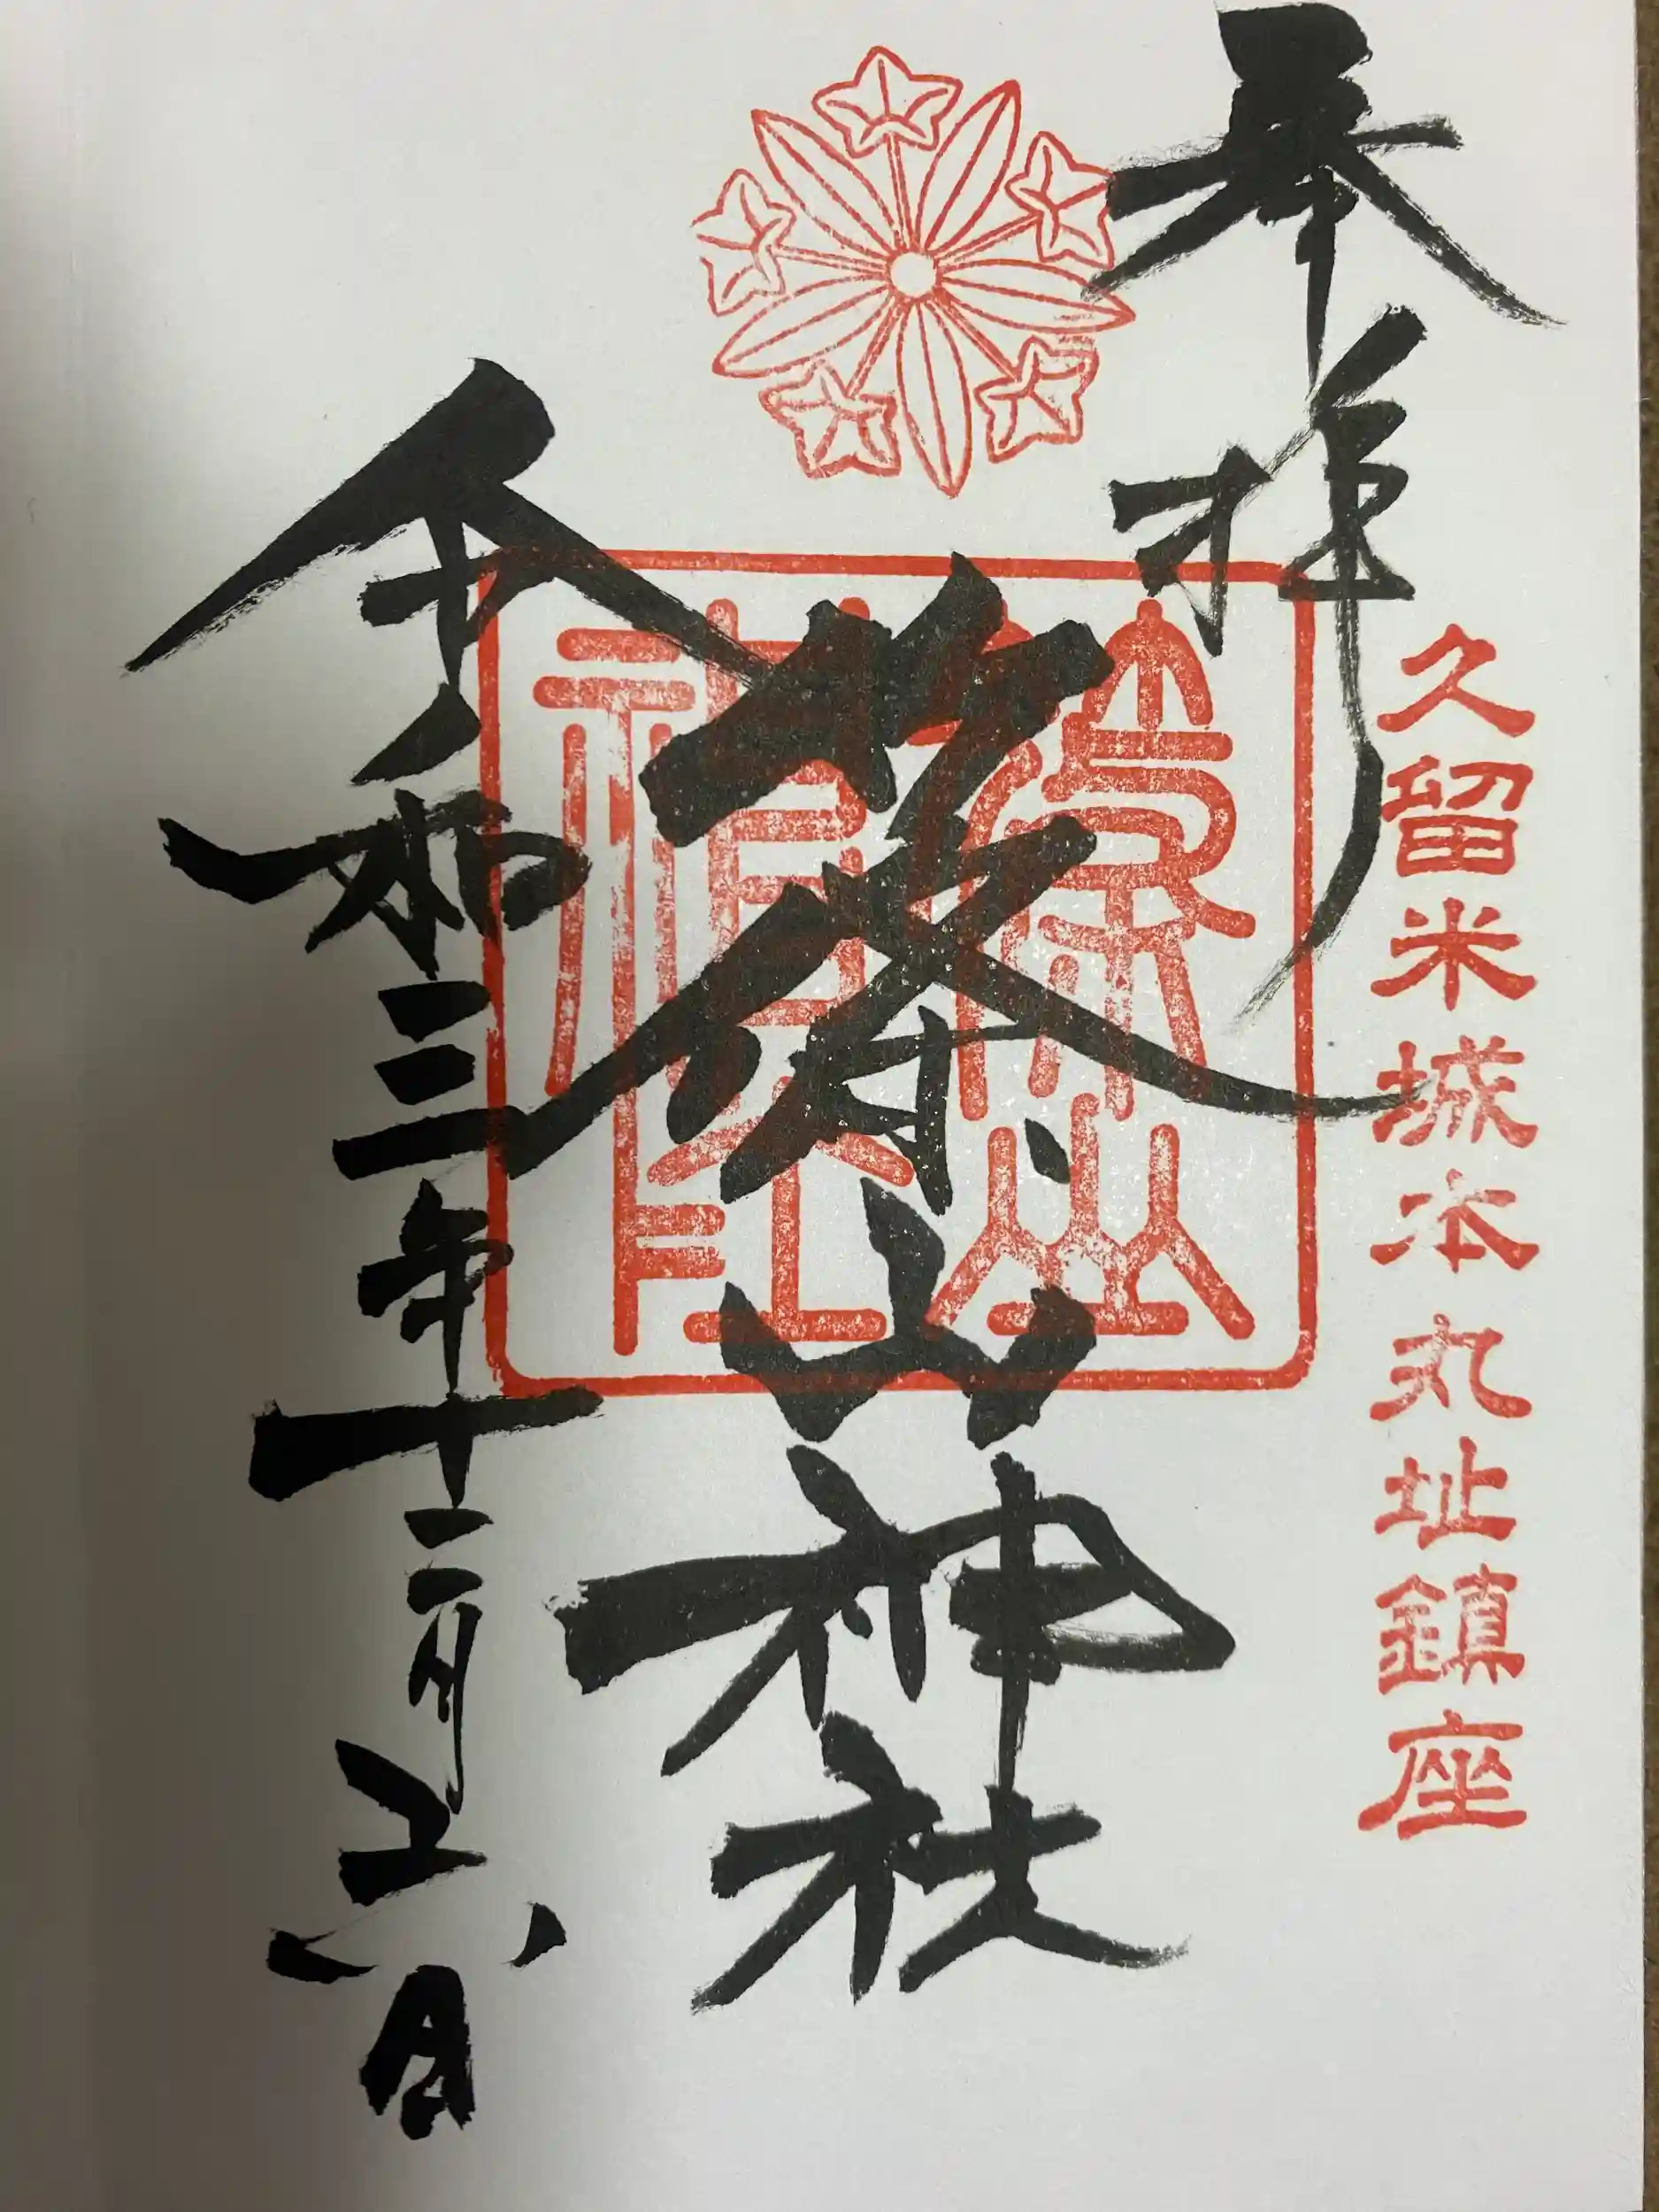 奉拝
久留米城本丸址鎮座
篠山神社
篠山
神社
令和三年十二月